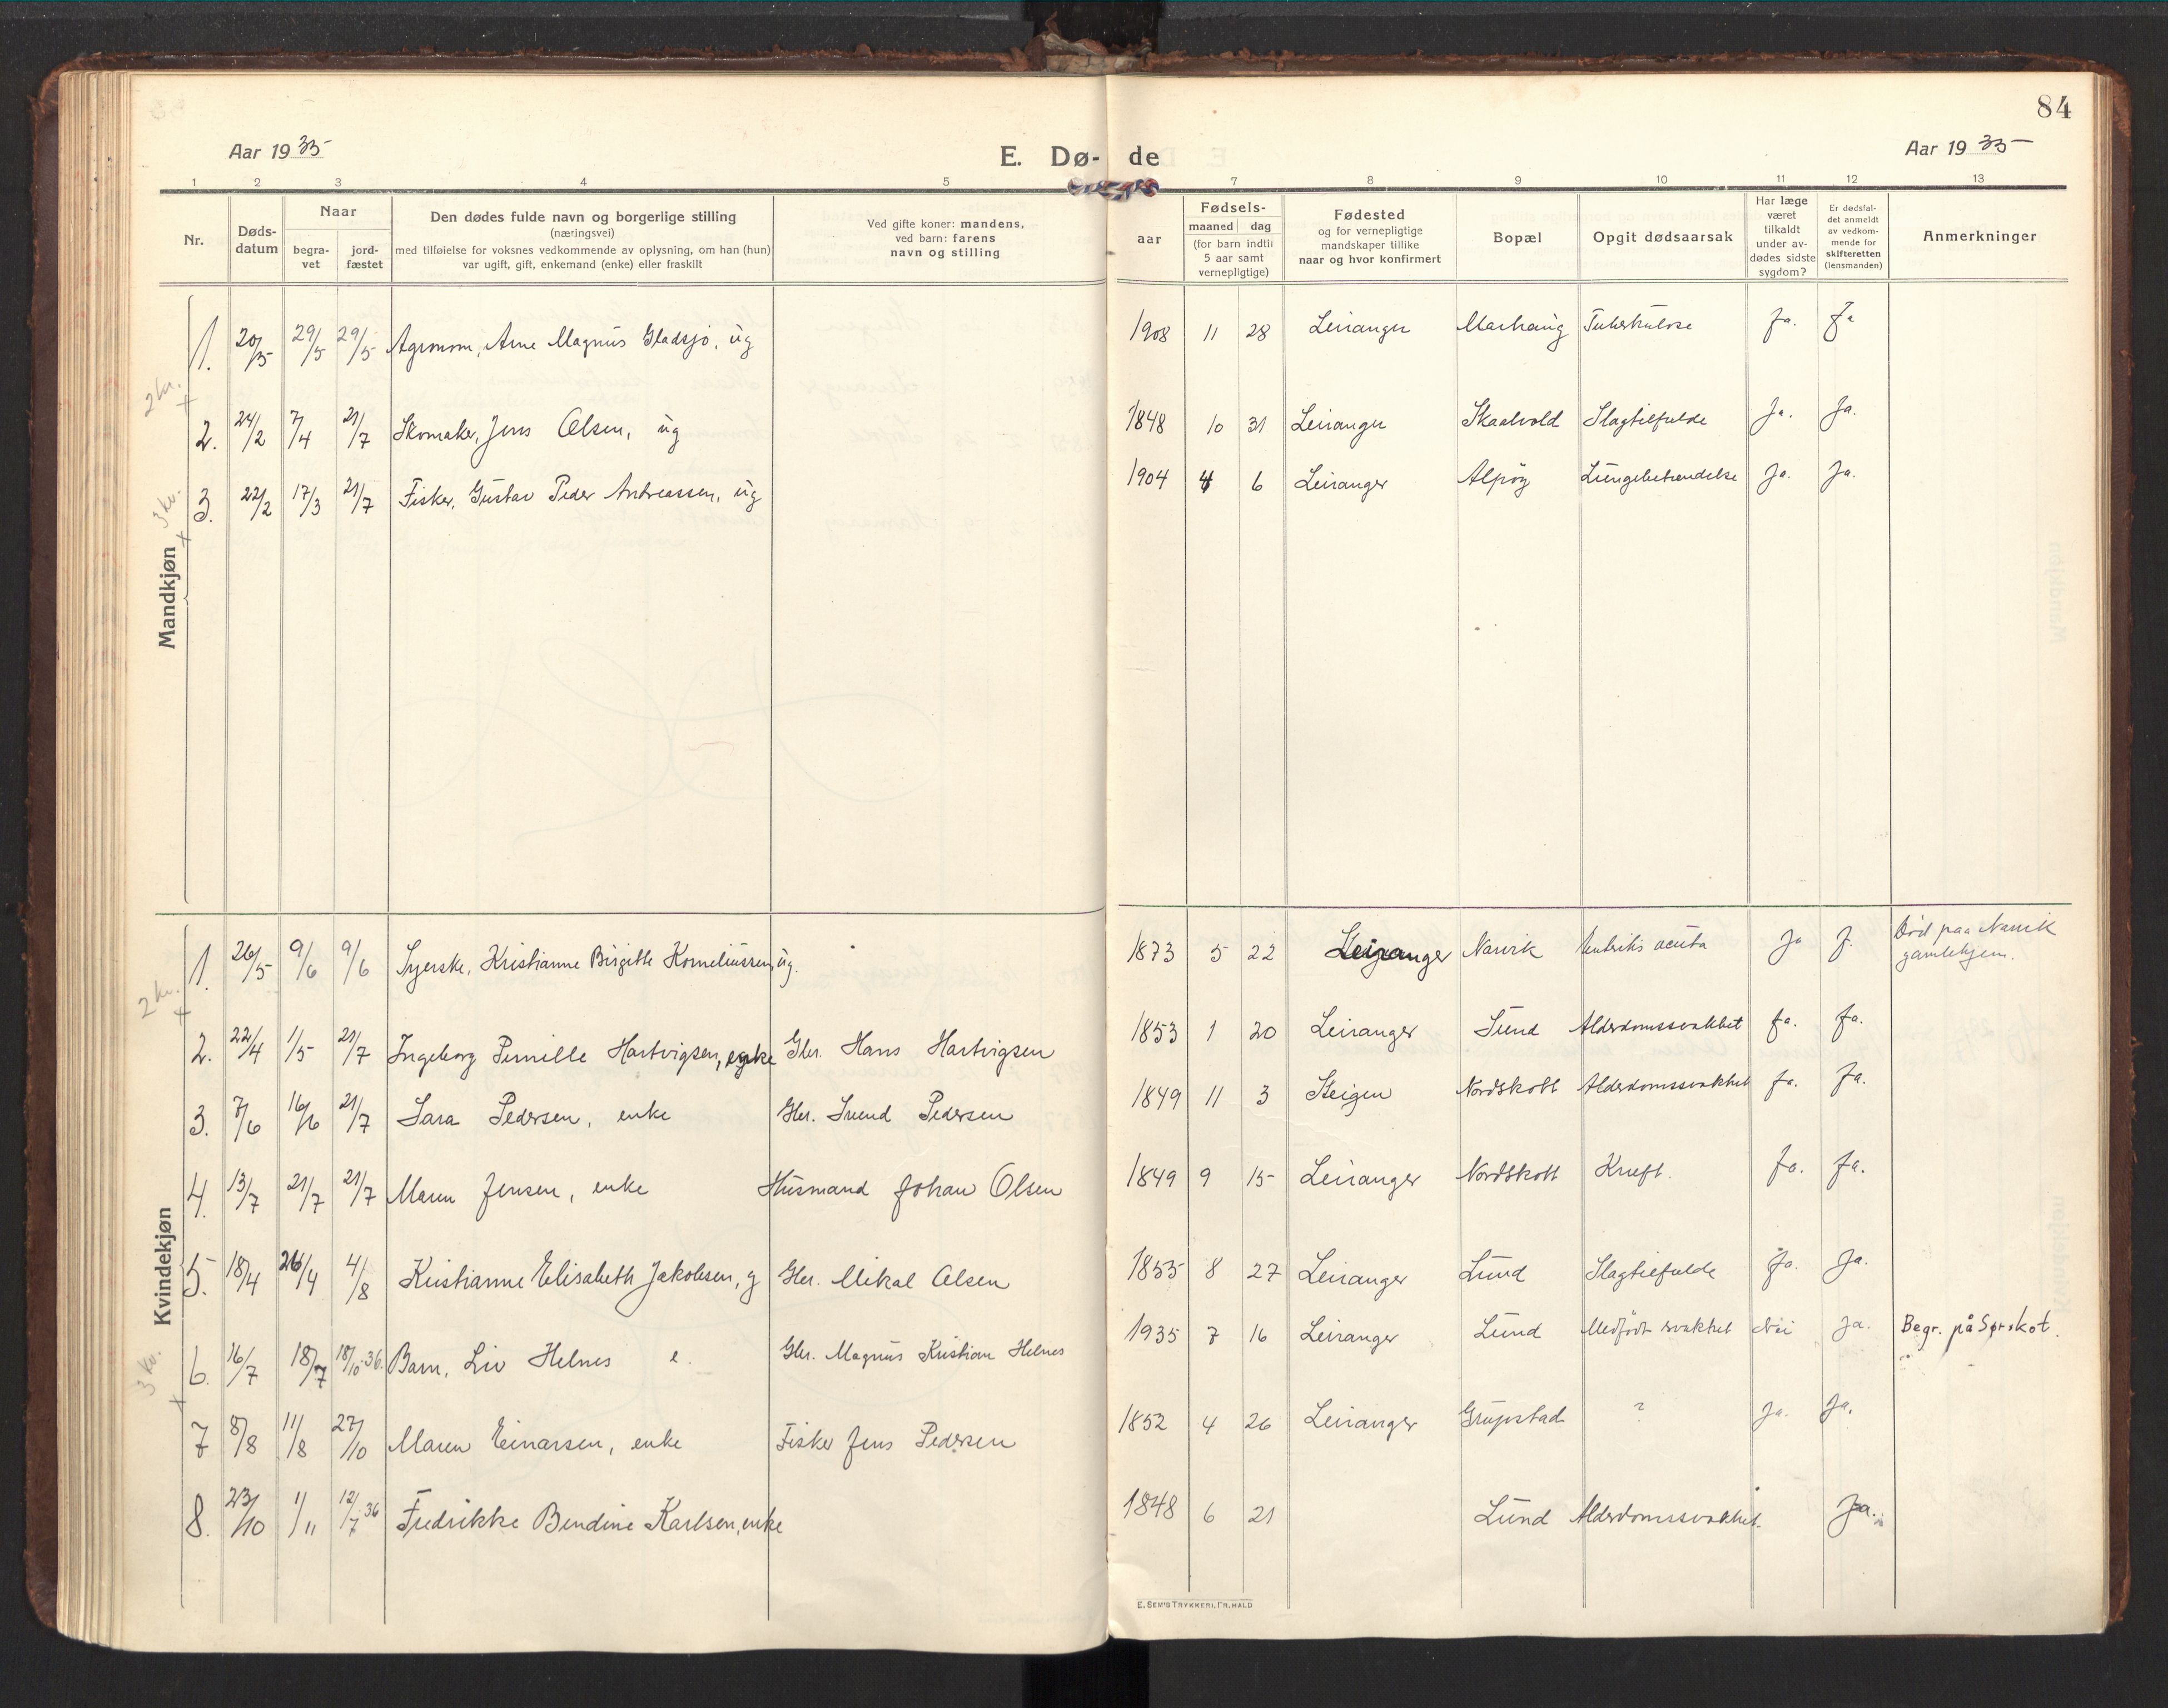 84
Aar 1935
E. Dø- de
Aar 1935
1 2 3 4 5 7 8 9 10 11 12 13
Nr.
Døds-
datum
Naar
begra-
vet
jord-
fæstet
Den dødes fulde navn og borgerlige stilling
(næringsvei)
med tilføielse for voksnes vedkommende av oplysning, om han (hun)
var ugift, gift, enkemand (enke) eller fraskilt
Ved gifte koner: mandens,
ved barn: farens
navn og stilling
Fødsels-
aar
maaned dag
(for barn indtil
5 aar samt
vernepligtige)
Fødested
og for vernepligtige
mandskaper tillike
naar og hvor konfirmert
Bopæl
Opgit dødsaarsak
Har læge
været
tilkaldt
under av-
dødes sidste
sygdom?
Er dødsfal-
det anmeldt
av vedkom-
mende for
skifteretten
(lensmanden)
Anmerkninger
Mandkjøn
1. 20/5 29/5 29/5 Agronom, Arne Magnus Gladsjø, ug 1908 11 28 Leiranger Marhaug Tuberkulose Ja. Ja
2 kr. +
2. 24/2 7/4 21/7 Skomaker, Jens Olsen, ug 1848 10 31 Leiranger Skaalvold Slagtilfælde Ja. Ja.
3 kr. +
3. 22/2 17/3 21/7 Fisker, Gustav Peder Andreassen, ug 1904 4 6 Leiranger Alpøy Lungebetændelse Ja. Ja.
Kvindekjøn
1. 26/5 9/6 9/6 Syerske, Kristianne Birgitte Korneliussen, ug. 1873 5 22 Leiranger Narvik acuta Ja J. Død paa Narvik
gamlehjem.
2 kr. +
2. 22/4 1/5 21/7 Ingeborg Pernille Hartvigsen, enke Gbr. Hans Hartvigsen 1853 1 20 Leiranger Sund Alderdomssvakhet Ja. Ja.
3. 7/6 16/6 21/7 Sara Pedersen, enke Gbr. Svend Pedersen 1849 11 3 Steigen Nordskott Alderdomssvakhet Ja. Ja.
4. 13/7 21/7 21/7 Maren Jensen, enke Husmand Johan Olsen 1849 9 15 Leiranger Nordskott Kræft. Ja. Ja.
5. 18/4 26/4 4/8 Kristianne Elisabeth Jakobsen, g Gbr. Mikal Olsen 1855 8 27 Leiranger Lund Slagtilfælde Ja. Ja.
3 kr. +
6. 16/7 18/7 18/10 36. Barn, Liv Helnes e. Gbr. Magnus Kristian Helnes 1935 7 16 Leiranger Lund Medfødt svakhet Nei Ja. Begr. på Sørskot.
7 8/8 11/8 27/10 Maren Einarsen, enke Fisker Jens Pedersen 1852 4 26 Leiranger Grøpstad ? Ja. Ja.
8. 23/10 1/11 12/7 36 Fredrikke Bendine Karlsen, enke 1848 6 21 Lund Alderdomssvakhet. Ja.
E. SEM'S TRYKKERI, FR. HALD